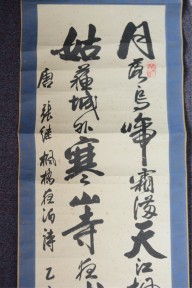 月落烏啼霜滿天江楓
姑蘇城外寒山寺夜
唐張继楓橋夜泊詩乙